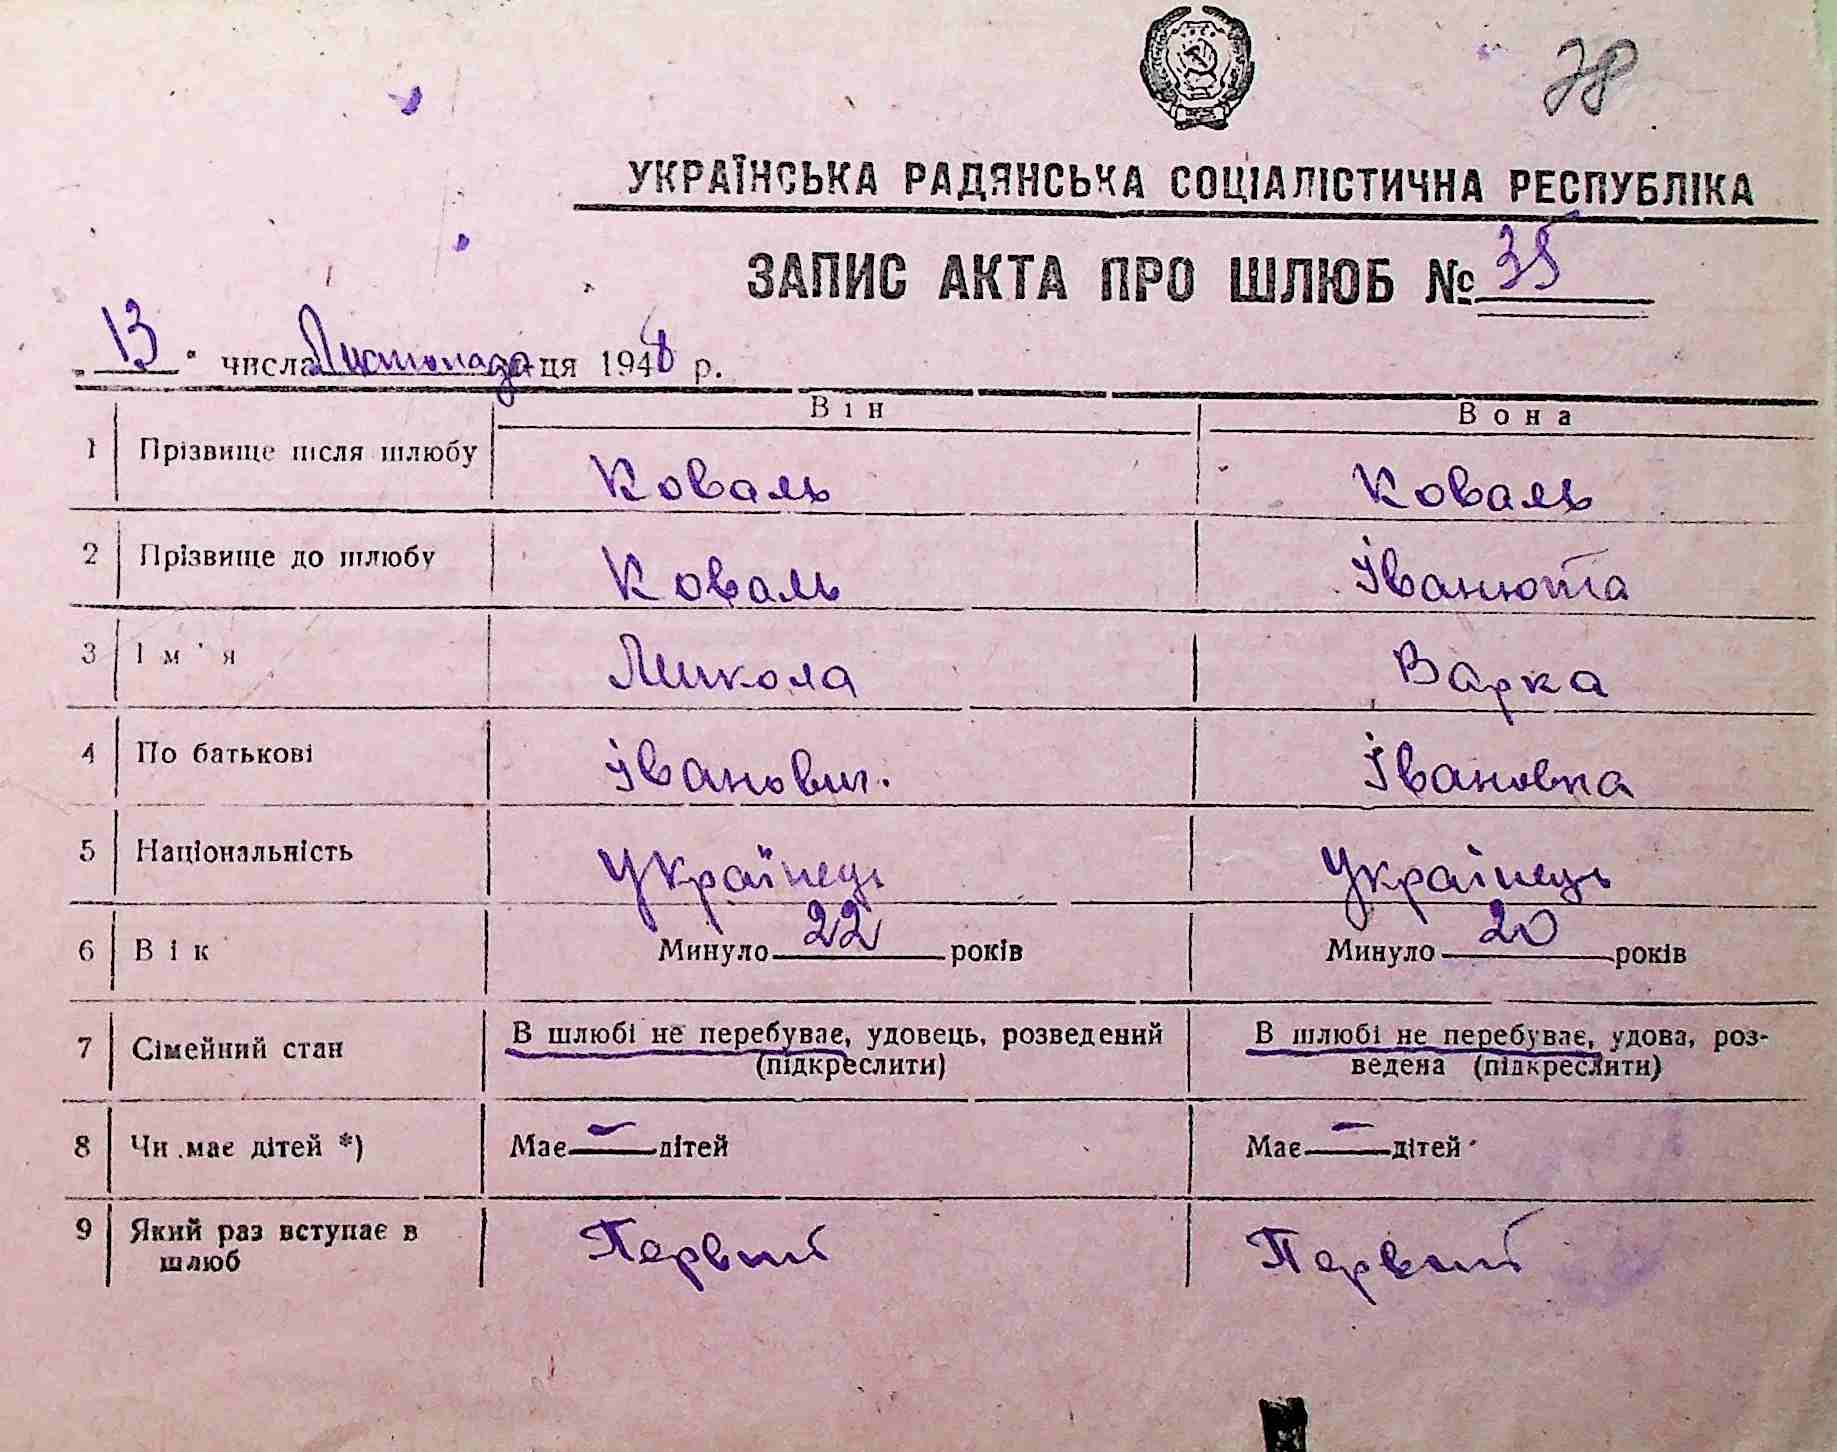 38
УКРАЇНСЬКА РАДЯНСЬКА СОЦІАЛІСТИЧНА РЕСПУБЛІКА
ЗАПИС АКТА ПРО ШЛЮБ № 35
„13" числа Листопада ця 1948 р.
Він Вона
1 Прізвище після шлюбу Коваль Коваль
2 Прізвище до шлюбу Коваль Іванюта
3 Ім'я Микола Варка
4 По батькові Іванович. Івановна
5 Національність Українець Українець
6 Вік Минуло 22 років Минуло 20 років
7 Сімейний стан В шлюбі не перебуває, удовець, розведений В шлюбі не перебуває, удова, роз-
(підкреслити) ведена (підкреслити)
8 Чи має дітей *) Має — дітей Має — дітей
9 Який раз вступає в Первий Первий
шлюб